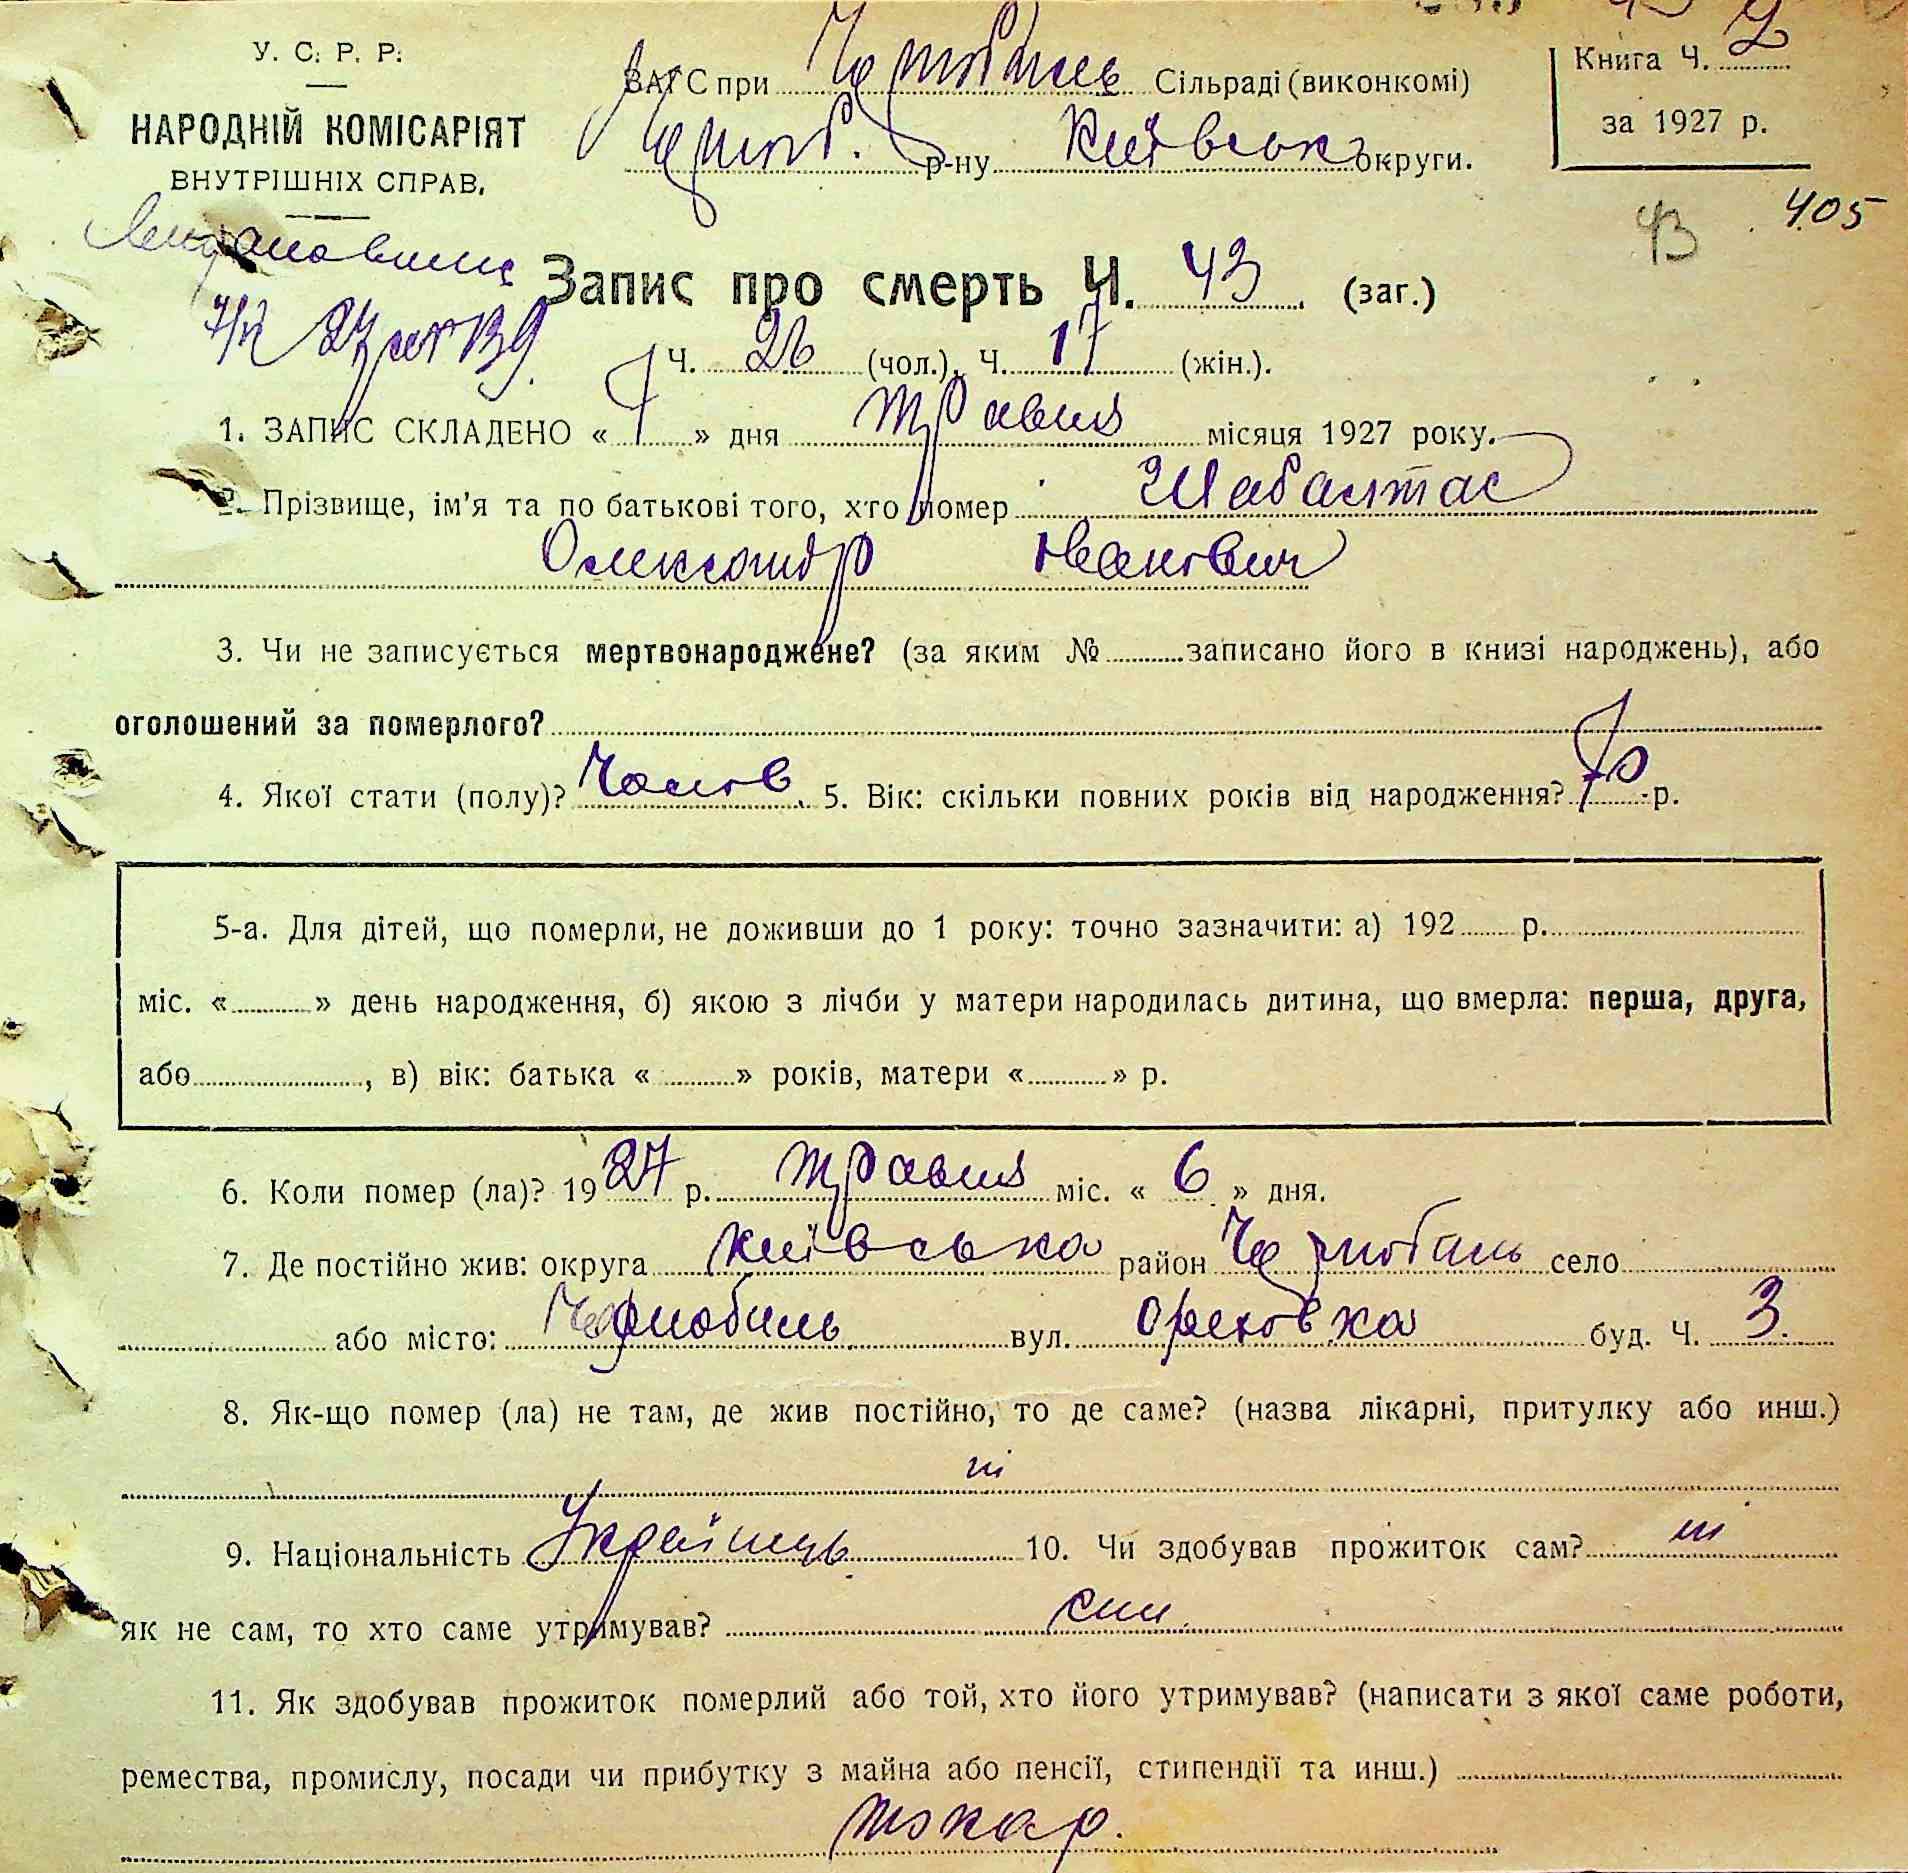 У. С. Р. Р.
НАРОДНІЙ КОМІСАРІЯТ
ВНУТРІШНІХ СПРАВ.
ЗАГС при Чорнобиль Сільраді (виконкомі)
Чорноб. р-ну Київськ округи.
Книга Ч. 2
за 1927 р.
43 405
Запис про смерть Ч. 43 (заг.)
Ч. 26 (чол.), Ч. 17 (жін.).
1. ЗАПИС СКЛАДЕНО « 7 » дня травня місяця 1927 року.
2. Прізвище, ім'я та по батькові того, хто помер Шабалтас
Олександр Іванович
3. Чи не записується мертвонароджене? (за яким № записано його в книзі народжень), або
оголошений за померлого?
4. Якої стати (полу)? Чолов. 5. Вік: скільки повних років від народження? 70 р.
5-а. Для дітей, що померли, не доживши до 1 року: точно зазначити: а) 192 р.
міс. « » день народження, б) якою з лічби у матери народилась дитина, що вмерла: перша, друга,
або , в) вік: батька « » років, матери « » р.
6. Коли помер (ла)? 1927 р. травня міс. « 6 » дня.
7. Де постійно жив: округа київська район Чорнобиль село
або місто: Чорнобиль вул. Ореховка буд. Ч. 3.
8. Як-що помер (ла) не там, де жив постійно, то де саме? (назва лікарні, притулку або инш.)
ні
9. Національність Українець 10. Чи здобував прожиток сам? ні
як не сам, то хто саме утримував? син.
11. Як здобував прожиток померлий або той, хто його утримував? (написати з якої саме роботи,
ремества, промислу, посади чи прибутку з майна або пенсії, стипендії та инш.)
токар.